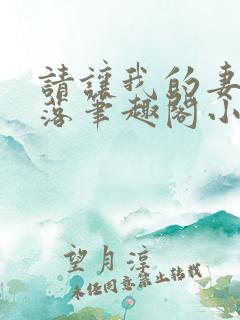 請讓我的妻
落筆趣閣小
望月淳
未經同意禁止转载